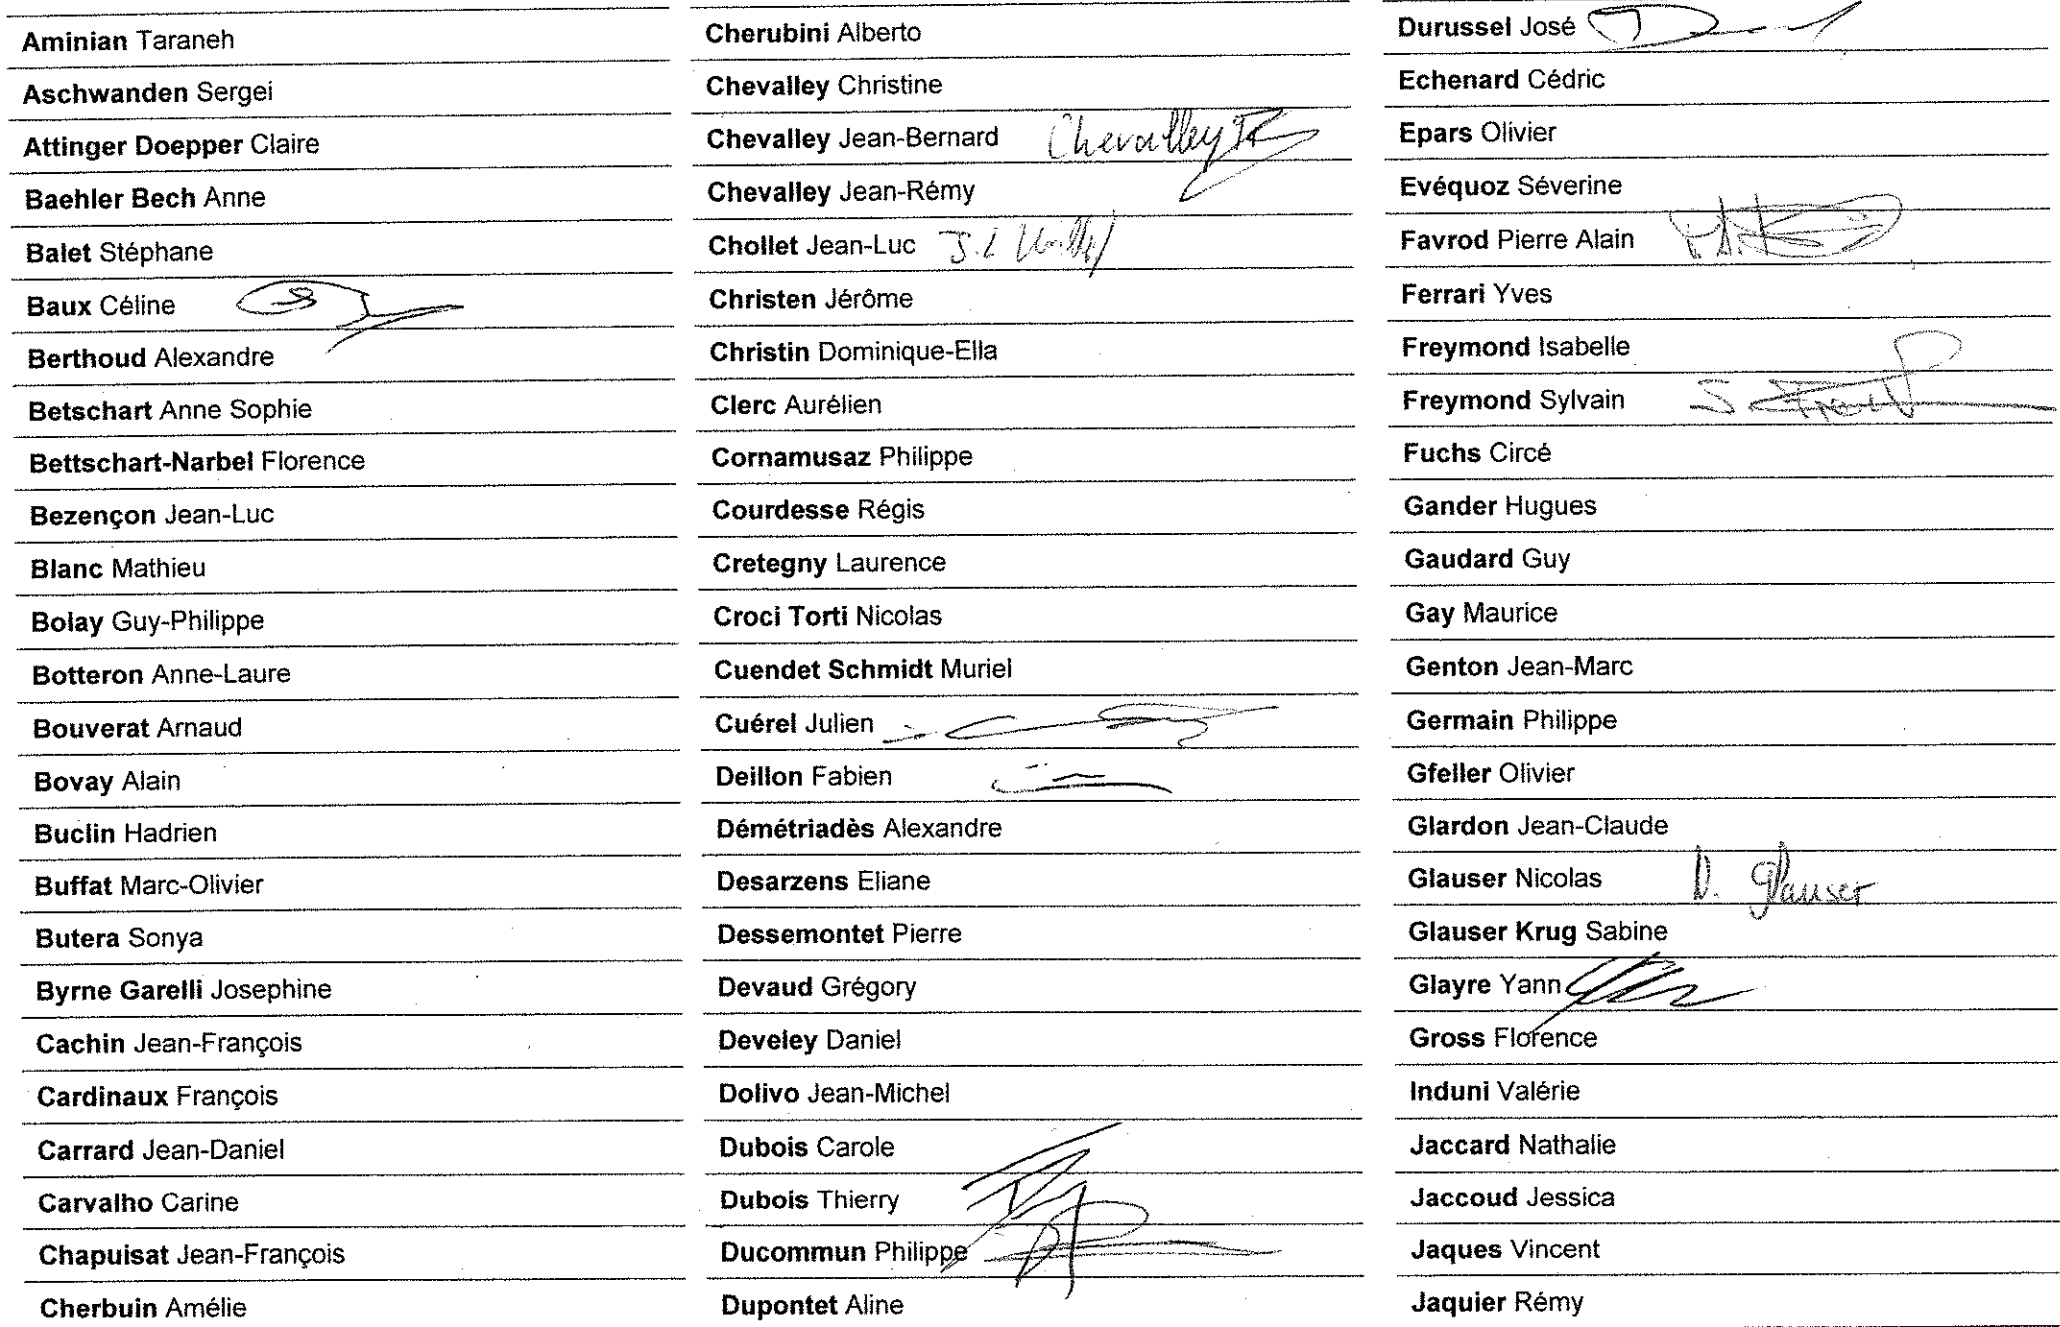 Aminian Taraneh
Aschwanden Sergei
Attinger Doepper Claire
Baehler Bech Anne
Balet Stéphane
Baux Céline
Berthoud Alexandre
Betschart Anne Sophie
Bettschart-Narbel Florence
Bezençon Jean-Luc
Blanc Mathieu
Bolay Guy-Philippe
Botteron Anne-Laure
Bouverat Arnaud
Bovay Alain
Buclin Hadrien
Buffat Marc-Olivier
Butera Sonya
Byrne Garelli Josephine
Cachin Jean-François
Cardinaux François
Carrard Jean-Daniel
Carvalho Carine
Chapuisat Jean-François
Cherbuin Amélie
Cherubini Alberto
Chevalley Christine
Chevalley Jean-Bernard Chevalley
Chevalley Jean-Rémy
Chollet Jean-Luc
Christen Jérôme
Christin Dominique-Ella
Clerc Aurélien
Cornamusaz Philippe
Courdesse Régis
Cretegny Laurence
Croci Torti Nicolas
Cuendet Schmidt Muriel
Cuérel Julien
Deillon Fabien
Démétriadès Alexandre
Desarzens Eliane
Dessemontet Pierre
Devaud Grégory
Develey Daniel
Dolivo Jean-Michel
Dubois Carole
Dubois Thierry
Ducommun Philippe
Dupontet Aline
Durussel José
Echenard Cédric
Epars Olivier
Evéquoz Séverine
Favrod Pierre Alain
Ferrari Yves
Freymond Isabelle
Freymond Sylvain
Fuchs Circé
Gander Hugues
Gaudard Guy
Gay Maurice
Genton Jean-Marc
Germain Philippe
Gfeller Olivier
Glardon Jean-Claude
Glauser Nicolas N. Glauser
Glauser Krug Sabine
Glayre Yann
Gross Florence
Induni Valérie
Jaccard Nathalie
Jaccoud Jessica
Jaques Vincent
Jaquier Rémy